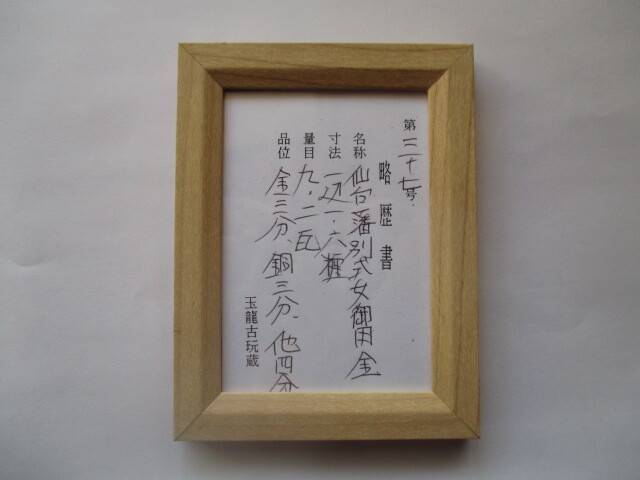 第三十七号.
略歴書
名称 仙台藩別式女御用金
寸法 一辺一・六糎
量目 九・二瓦
品位 金三分、銅三分、他四分
玉龍古玩蔵